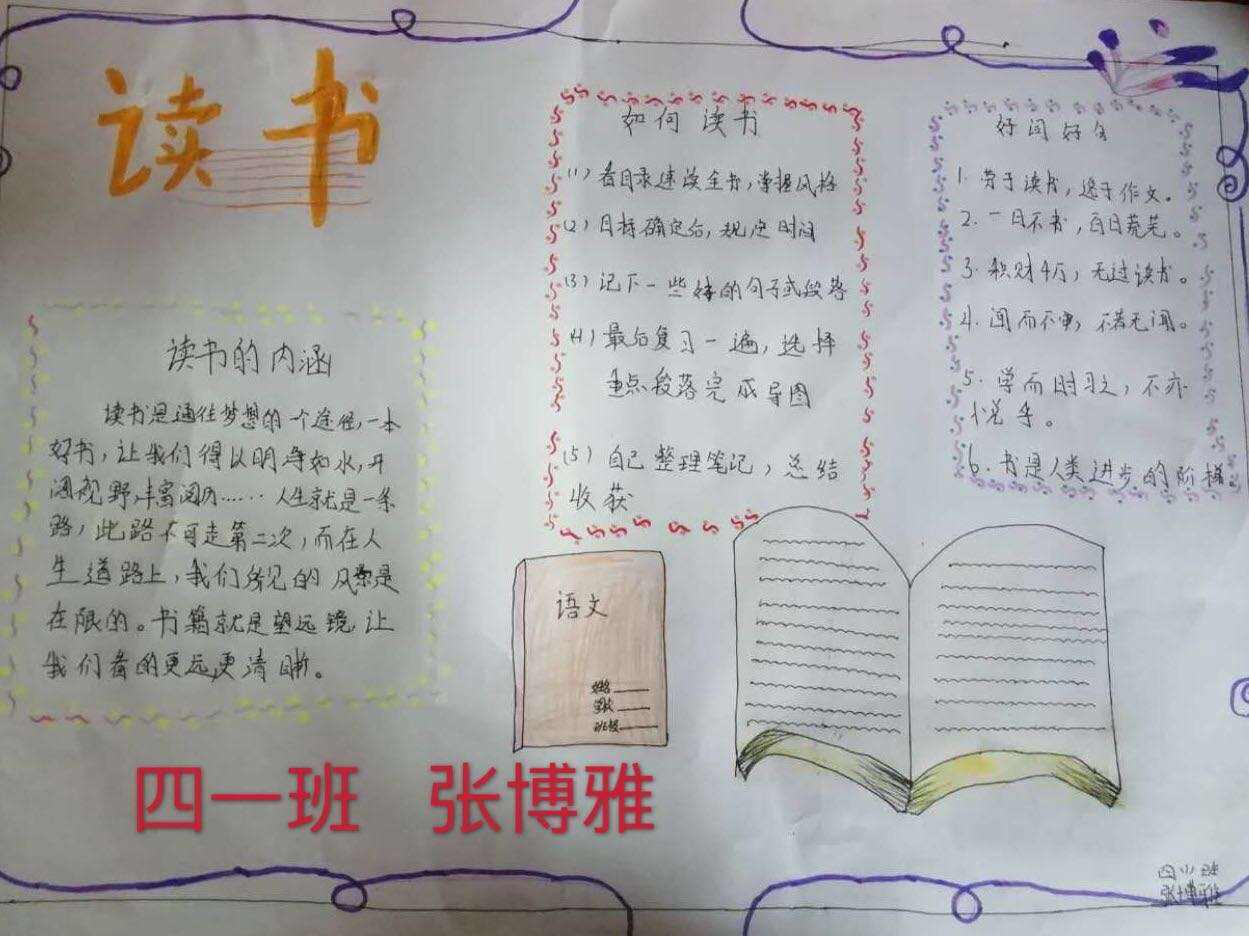 读书
读书的内涵
读书是通往梦想的一个途径,一本
好书,让我们得以明净如水,开
阔视野,丰富阅历……人生就是一条
路,此路不可走第二次,而在人
生道路上,我们所见的风景是
在限的。书籍就是望远镜,让
我们看的更远更清晰。
如何读书
(1)看目录速读全书,掌握风格
(2)目标确定后,规定时间
(3)记下一些好的句子或段落
(4)最后复习一遍,选择
重点段落完成导图
(5)自己整理笔记,总结
收获
好词好句
1.劳于读书,逸于作文。
2.一日不书,百日荒芜。
3.积财千万,无过读书。
4.闻而不审,不若无闻。
5.学而时习之,不亦
悦乎。
6.书是人类进步的阶梯
语文
姓名
学校
班级
四一班 张博雅
四(1)班
张博雅